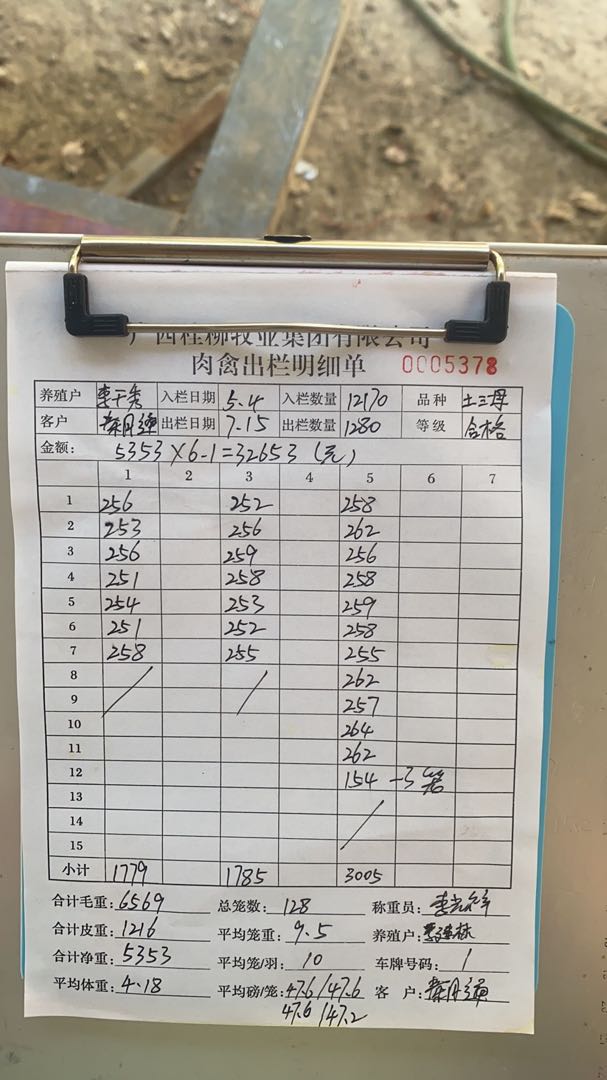 广西桂柳牧业集团有限公司
肉禽出栏明细单 0005378
养殖户 入栏日期 5.4 入栏数量 12170 品种 土三母
客户 出栏日期 7.15 出栏数量 1280 等级 合格
金额: 5353×6.1=32653(元)
1 2 3 4 5 6 7
1 256 252 258
2 253 256 262
3 256 259 256
4 251 258 258
5 254 253 259
6 251 252 258
7 258 255 255
8 262
9 257
10 264
11 262
12 154 -3
13
14
15
小计 1779 1785 3005
合计毛重: 6569 总笼数: 128 称重员:
合计皮重: 1216 平均笼重: 9.5 养殖户:
合计净重: 5353 平均笼/羽: 10 车牌号码: 1
平均体重: 4.18 平均磅/笼: 47.6/47.6 客户:
47.6/47.2